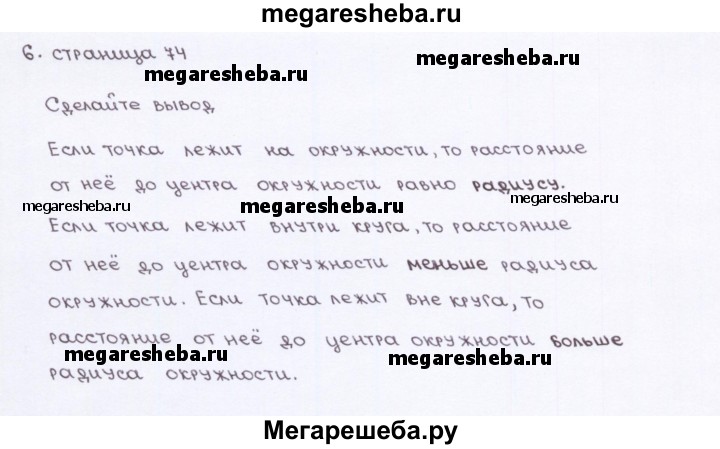 megaresheba.ru
6. страница 74
megaresheba.ru
Сделайте вывод
Если точка лежит на окружности, то расстояние
от неё до центра окружности равно радиусу.
megaresheba.ru megaresheba.ru megaresheba.ru
Если точка лежит внутри круга, то расстояние
от неё до центра окружности меньше радиуса
окружности. Если точка лежит вне круга, то
расстояние от неё до центра окружности больше
megaresheba.ru megaresheba.ru
радиуса окружности.
Мегарешеба.ру